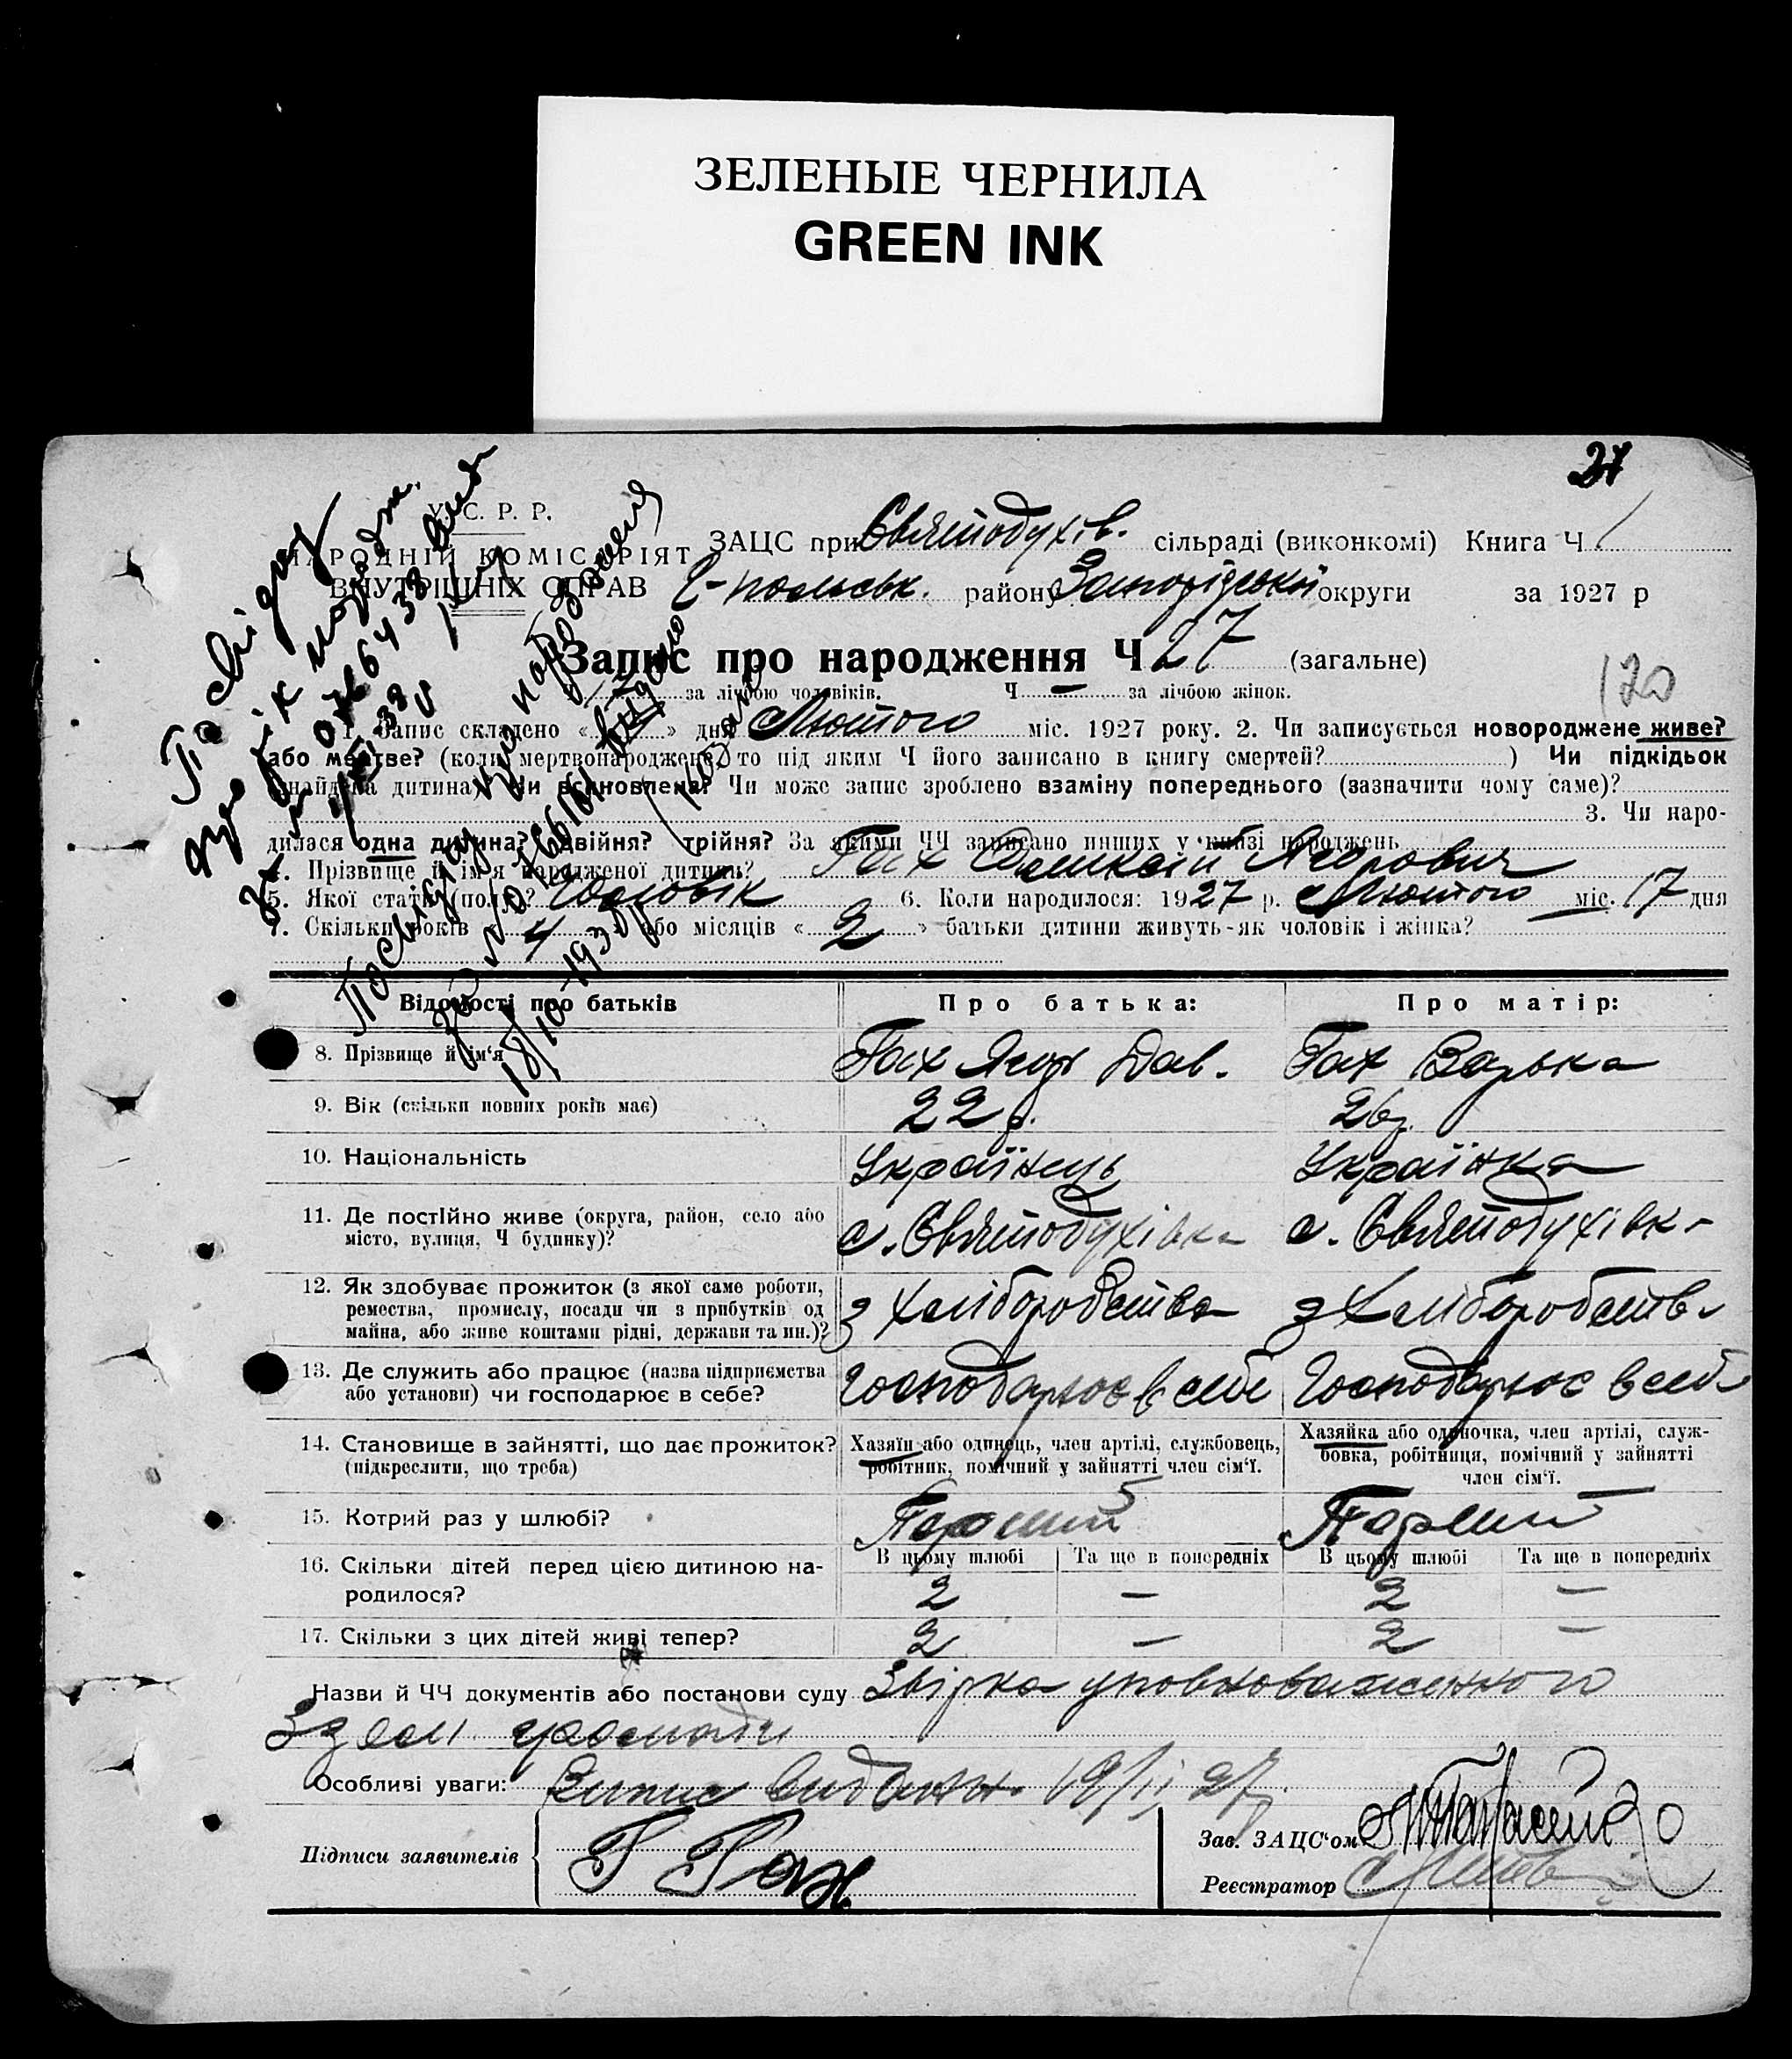 ЗЕЛЕНЫЕ ЧЕРНИЛА
GREEN INK
27
У. С. Р. Р.
НАРОДНІЙ КОМІСАРІЯТ
ВНУТРІШНІХ СПРАВ
ЗАЦС при Святодухів. сільраді (виконкомі) Книга Ч 1
району Запорізької округи за 1927 р
Запис про народження Ч 27 (загальне)
за лічбою чоловіків. Ч — за лічбою жінок.
120
1. Запис складено « » дня Лютого міс. 1927 року. 2. Чи записується новороджене живе?
або мертве? (коли мертвонароджене, то під яким Ч його записано в книгу смертей? ) Чи підкідьок
(знайдена дитина) Чи всиновлена? Чи може запис зроблено взаміну попереднього (зазначити чому саме)?
3. Чи наро-
дилася одна дитина? двійня? трійня? За якими ЧЧ записано инших у книзі народжень
4. Прізвище й ім'я народженої дитини? Гах Ягорович
5. Якої статі (полу)? Чоловік 6. Коли народилося: 1927 р. Лютого міс. 17 дня
7. Скільки років « 4 або місяців « 2 » батьки дитини живуть-як чоловік і жінка?
Посвідку про народження
Відомості про батьків Про батька: Про матір:
8. Прізвище й ім'я Гах Ягор Дав. Гах Варька
9. Вік (скільки повних років має) 22 р. 26 р.
10. Національність Українець Українка
11. Де постійно живе (округа, район, село або
місто, вулиця, Ч будинку)? с. Святодухівка с. Святодухівка
12. Як здобуває прожиток (з якої саме роботи,
ремества, промислу, посади чи з прибутків од
майна, або живе коштами рідні, держави та ин.)? з Хліборобства з Хліборобства
13. Де служить або працює (назва підприємства
або установи) чи господарює в себе? Господарює в себе Господарює в себе
14. Становище в зайнятті, що дає прожиток?
(підкреслити, що треба)
Хазяїн або одинець, член артілі, службовець,
робітник, помічний у зайнятті член сім'ї.
Хазяйка або одиночка, член артілі, служ-
бовка, робітниця, помічний у зайнятті
член сім'ї.
15. Котрий раз у шлюбі? Перший Перший
В цьому шлюбі Та ще в попередніх В цьому шлюбі Та ще в попередніх
16. Скільки дітей перед цією дитиною на-
родилося? 2 — 2 —
17. Скільки з цих дітей живі тепер? 2 — 2 —
Назви й ЧЧ документів або постанови суду Звірка уповноваженного
Зем громади
Особливі уваги: Випис видана 19/II 27
Підписи заявителів Г Гах
Зав. ЗАЦС'ом
Реєстратор